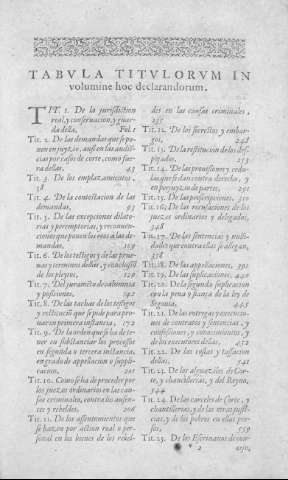 TABVLA TITVLORVM IN
volumine hoc declarandorum.
TIT. 1. De la jurisdiction
real, y conseruacion, y guar-
da della. Fol. 1
Tit. 2. De las demandas que se po-
nen en juyzio, assi en las audiē-
cias por caso de corte, como fue-
ra dellas. 45
Tit. 3. De los emplazamientos.
58
Tit. 4. De la contestacion de las
demandas. 95
Tit. 5. De las excepciones dilato-
rias y peremptorias, y reconuen-
ciones que ponen los reos a las de-
mandas. 119
Tit. 6. De los testigos y de las prue-
uas y terminos dellas, y conclusiō
de los pleytos. 120
Tit. 7. Del juramento de calumnia
y posiciones. 142
Tit. 8. De las tachas de los testigos
y restitucion que se pide para pro-
uar en primera instancia. 172
Tit. 9. De la orden que se ha de te-
ner en substanciar los processos
en segunda o tercera instancia,
en grado de appellacion o suppli-
cacion. 201
Tit. 10. Como se ha de proceder por
los juezes ordinarios en las cau-
sas criminales, contra los ausen-
tes y rebeldes. 206
Tit. 11. De los assentamientos que
se hazen por action real o per-
sonal en los bienes de los rebel-
des en las causas criminales.
235
Tit. 12. De los secrestos y embar-
gos. 248
Tit. 13. De la restitucion de los des-
pojados. 253
Tit. 14. De las prouisiones y cedu-
las que se dan contra derecho, y
en perjuyzio de partes. 291
Tit. 15. De las prescripciones. 310
Tit. 16. De las recusaciones de los
juezes ordinarios y delegados.
348
Tit. 17. De las sentencias y nulli-
dades que contra ellas se alegan.
358
Tit. 18. De las appellaciones. 391
Tit. 19. De las suplicaciones. 420
Tit. 20. De la segunda suplicacion
con la pena y fiança de la ley de
Segouia. 445
Tit. 21. De las entregas y execucio-
nes de contratos y sentencias, y
confessiones, y conoscimientos, y
de los executores dellas. 452
Tit. 22. De las costas y tassacion
dellas. 541
Tit. 23. De los alguaziles de Cor-
te, y chancillerias, y del Reyno.
544
Tit. 24. De las carceles de Corte, y
chancillerias, y de las otras justi-
cias, y de los pobres en ellas pre-
sos. 559
Tit. 25. De los Escriuanos de con-
2 cejo,